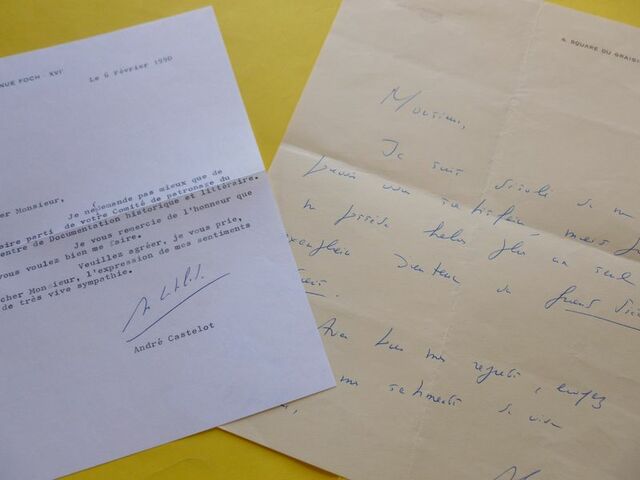 NUE FOCH - XVI°
Le 6 Février 1990
cher Monsieur,
Je ne demande pas mieux que de
aire parti de votre Comité de patronage du
entre de Documentation historique et littéraire.
Je vous remercie de l'honneur que
vous voulez bien me faire.
Veuillez agréer, je vous prie,
cher Monsieur, l'expression de mes sentiments
de très vive sympathie.
André Castelot
4, SQUARE DU GRAISI
Monsieur,
Je suis désolé de ne
pouvoir vous satisfaire, mais je
ne possède hélas plus un seul
exemplaire
Avec tous mes regrets, croyez
mes sentiments